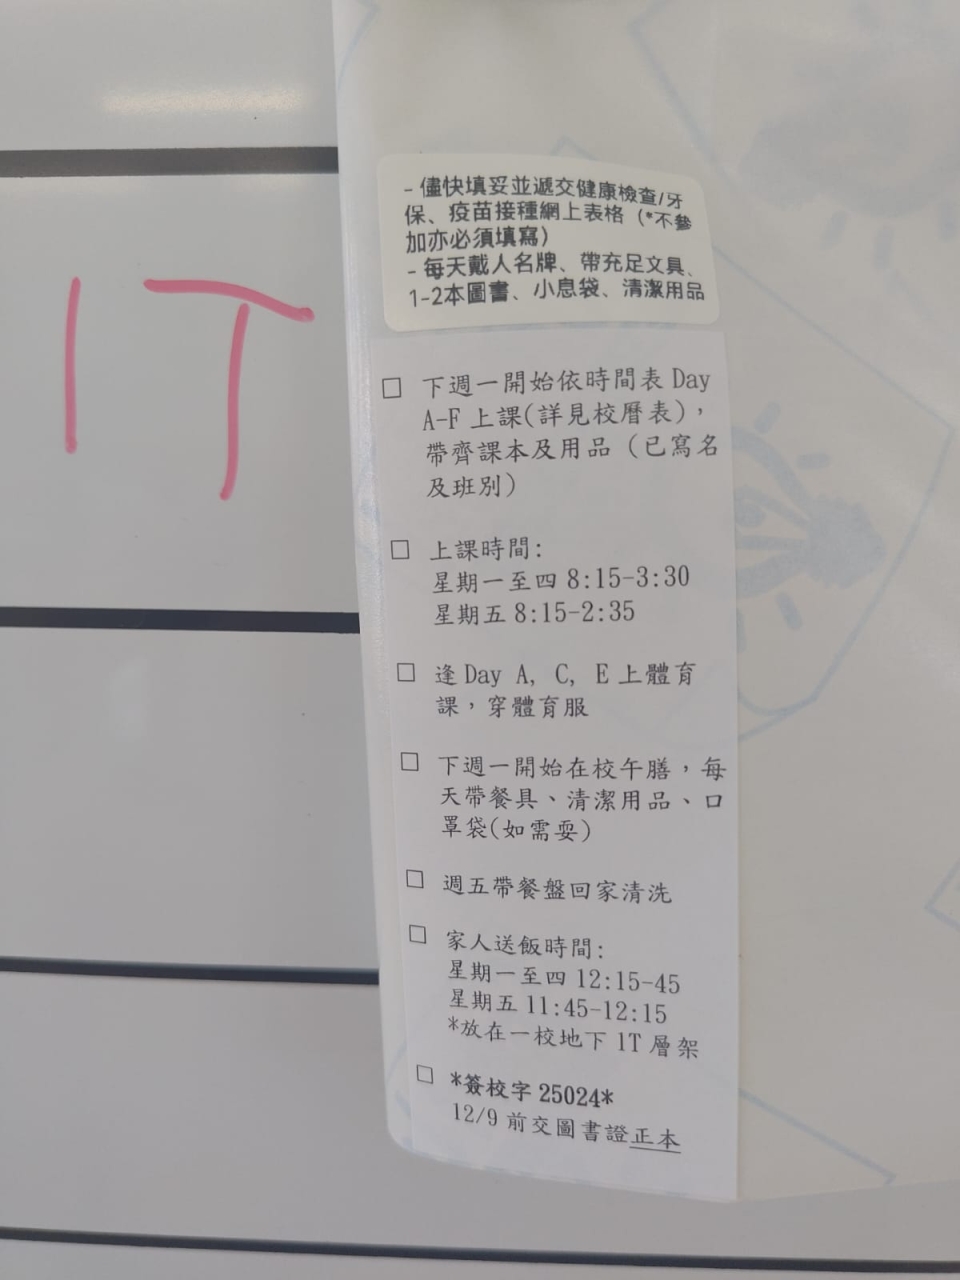 1T
- 儘快填妥並遞交健康檢查/牙
保、疫苗接種網上表格（*不參
加亦必須填寫）
- 每天戴人名牌、帶充足文具、
1-2本圖書、小息袋、清潔用品
☐ 下週一開始依時間表 Day
A-F 上課(詳見校曆表)，
帶齊課本及用品（已寫名
及班別）
☐ 上課時間:
星期一至四 8:15-3:30
星期五 8:15-2:35
☐ 逢 Day A, C, E 上體育
課，穿體育服
☐ 下週一開始在校午膳，每
天帶餐具、清潔用品、口
罩袋(如需耍)
☐ 週五帶餐盤回家清洗
☐ 家人送飯時間:
星期一至四 12:15-45
星期五 11:45-12:15
*放在一校地下 1T 層架
☐ *簽校字 25024*
12/9 前交圖書證正本